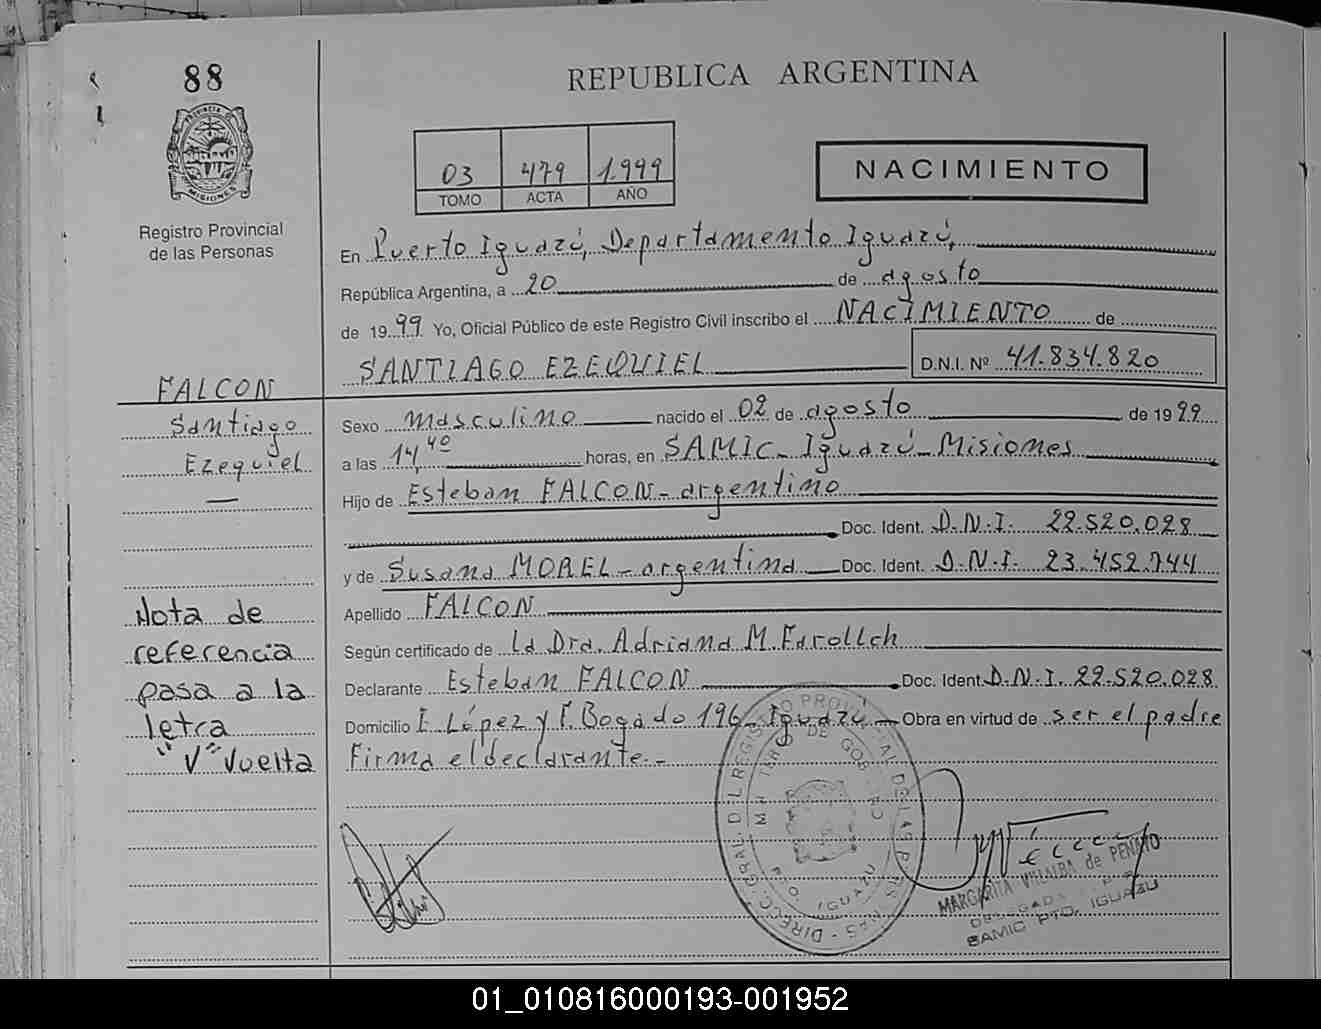 88
PROVINCIA DE
MISIONES
Registro Provincial
de las Personas
REPUBLICA ARGENTINA
03 479 1.999
TOMO ACTA AÑO
NACIMIENTO
En Puerto Iguazú, Departamento Iguazú,
República Argentina, a 20 de agosto
de 1999 Yo, Oficial Público de este Registro Civil inscribo el NACIMIENTO de
SANTIAGO EZEQUIEL D.N.I. Nº 41.834.820
FALCON
Santiago
Ezequiel
Sexo masculino nacido el 02 de agosto de 1999
a las 14,40 horas, en SAMIC - Iguazú - Misiones
Hijo de Esteban FALCON - argentino
Doc. Ident. D.N.I. 22.520.028
y de Susana MOREL - argentina Doc. Ident. D.N.I. 23.452.744
Apellido FALCON
Según certificado de La Dra. Adriana M.
Declarante Esteban FALCON Doc. Ident. D.N.I. 22.520.028
Domicilio E. López y F. Bogado 196 - Iguazú - Obra en virtud de ser el padre
Firma el declarante.-
Nota de
referencia
pasa a la
letra
"V" Vuelta
DIRECC. GRAL. DEL REGISTRO PROVINCIAL DE LAS PERSONAS
PTO. IGUAZU
MARGARITA VILLALBA de PENAYO
DELEGADA
SAMIC PTO. IGUAZU
01_010816000193-001952